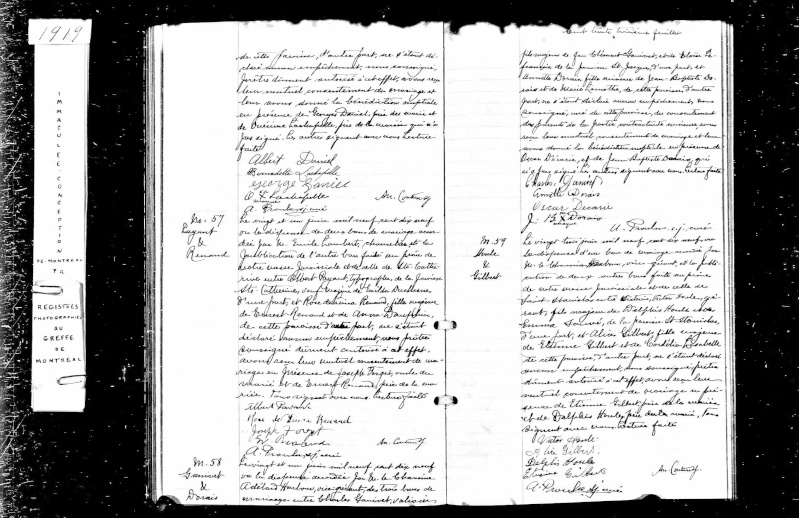 1919
IMMACULEE-CONCEPTION
DE-MONTREAL
P.Q.
REGISTRES
PHOTOGRAPHIES
AU
GREFFE
DE
MONTREAL
de cette paroisse, d'autre part, ne s'étant dé-
claré aucun empêchement, nous soussigné,
prêtre dûment autorisé à cet effet, avons reçu
leur mutuel consentement de mariage et
leur avons donné la bénédiction nuptiale
en présence de Georges Daniel, père du marié et
de Lachapelle, père de la mariée qui n'a
pas signé. Les autres signent avec nous. Lecture
faite
Albert Daniel
Bernadette Lachapelle
George Daniel
A. Proulx s.j. curé
M. 57
&
Renaud
Le vingt et un juin mil neuf cent dix neuf
vu la dispense de deux bans de mariage accor-
dée par M. Emile Lambert, chancelier et la
publication de l'autre ban faite au prône de
notre messe paroissiale et de celle de Ste Cathe-
rine entre Albert typographe, de la paroisse
Ste Catherine, veuf majeur de Emilia Duchesne
d'une part, et Rose de Lima Renaud, fille majeure
de Ernest Renaud et de Anna Dauphin,
de cette paroisse d'autre part, ne s'étant
déclaré aucun empêchement, nous prêtre
soussigné dûment autorisé à cet effet,
avons reçu leur mutuel consentement de ma-
riage en présence de Joseph Forget, oncle du
marié et de Ernest Renaud, père de la ma-
riée. Tous signent avec nous. Lecture faite
Albert
Rose de Lima Renaud
Joseph Forget
E. Renaud
A. Proulx s.j. curé
M. 58
Gauvet
&
Dorais
Le vingt et un juin mil neuf cent dix neuf
vu la dispense accordée par M. le Chanoine
Adélard Harbour, vice-gérant, des trois bans de
mariage entre Charles Gauvet,
cent trente troisième feuillet
fils majeur de feu Clément Gauvet, et de
de la paroisse St Jacques, d'une part, et
Annette Dorais, fille mineure de Jean-Baptiste Do-
rais et de Marie Lamothe, de cette paroisse d'autre
part, ne s'étant déclaré aucun empêchement, nous
soussigné, curé de cette paroisse, du consentement
des parents de la partie contractante mineure avons
reçu leur mutuel consentement de mariage et leur
avons donné la bénédiction nuptiale en présence de
Oscar Décarie, et de Jean Baptiste Dorais, qui
n'a pas signé. Les autres signent avec nous. Lecture faite
Charles Gauvet
Annette Dorais
Oscar Décarie
J. B. X Dorais
A. Proulx, s.j. curé
M. 59
Houle
&
Gilbert
Le vingt trois juin mil neuf cent dix neuf, vu
la dispense d'un ban de mariage accordée par
M. le Chanoine Harbour, vice-gérant, et la publi-
cation des deux autres bans faite au prône
de notre messe paroissiale et de celle de
Saint-Stanislas entre Victor Houle,
fils majeur de Delphis Houle et de
Emma Sauvé, de la paroisse St Stanislas,
d'une part, et Alice Gilbert, fille majeure
de Etienne Gilbert et de Cordélia
de cette paroisse, d'autre part, ne s'étant déclaré
aucun empêchement, nous soussigné prêtre
dûment autorisé à cet effet, avons reçu leur
mutuel consentement de mariage en pré-
sence de Etienne Gilbert, père de la mariée
et de Delphis Houle, père du marié, Tous
signent avec nous. Lecture faite
Victor Houle
Alice Gilbert
Delphis Houle
Etienne Gilbert
A. Proulx s.j. curé